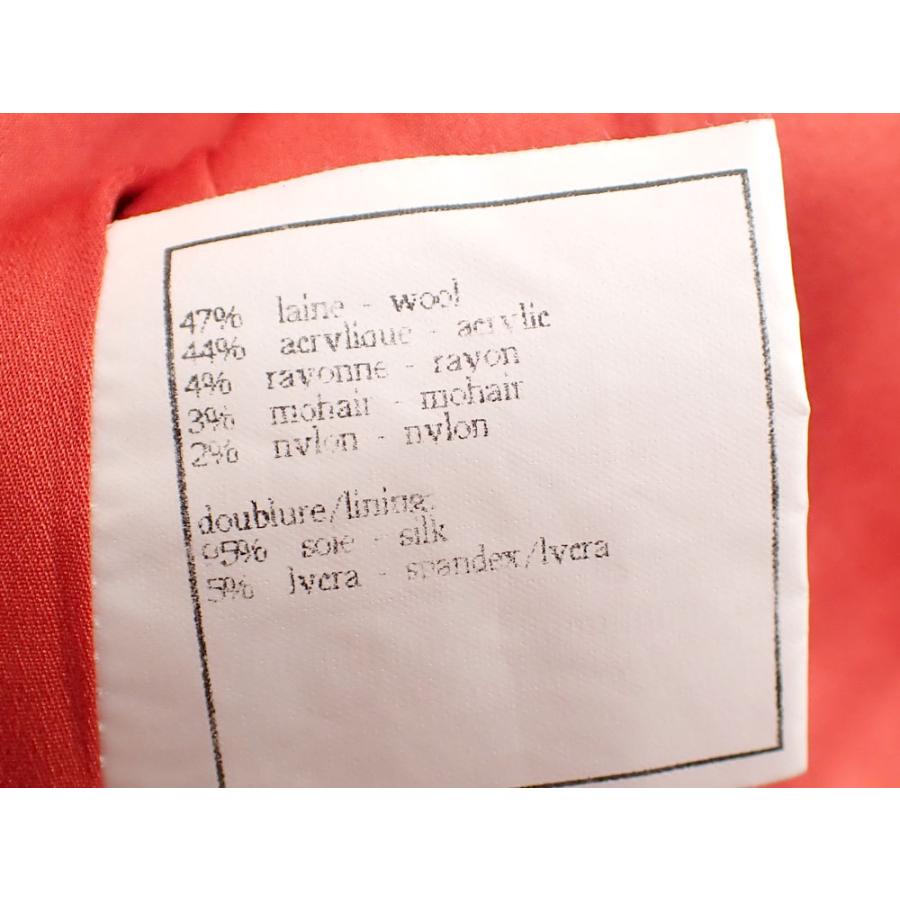 47% laine - wool
44% acrylique - acrylic
4% rayonne - rayon
3% mohair - mohair
2% nylon - nylon
doublure/lining:
95% soie - silk
5% lycra - spandex/lycra